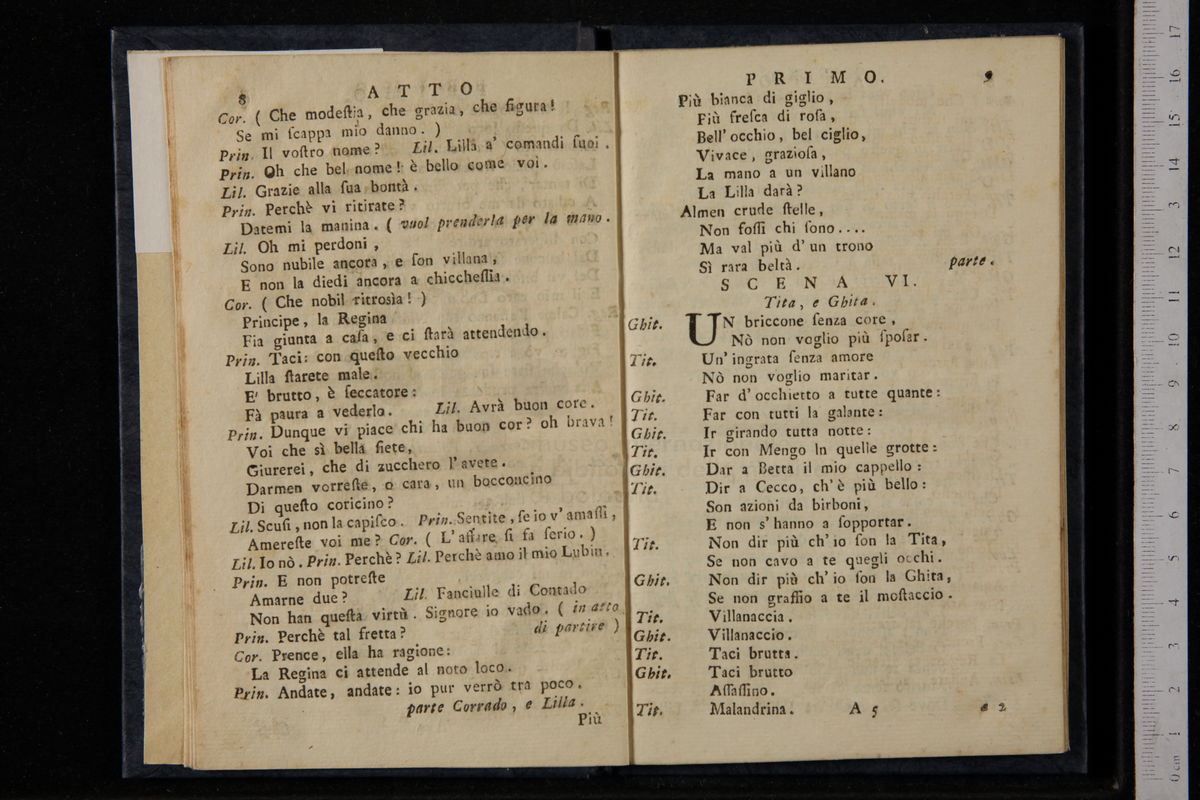 8 ATTO
Cor. ( Che modeſtia, che grazia, che figura!
Se mi ſcappa mio danno. )
Prin. Il voſtro nome? Lil. Lilla a' comandi ſuoi.
Prin. Oh che bel nome! è bello come voi.
Lil. Grazie alla ſua bontà.
Prin. Perchè vi ritirate?
Datemi la manina. ( vuol prenderla per la mano.
Lil. Oh mi perdoni,
Sono nubile ancora, e ſon villana,
E non la diedi ancora a chiccheſſia.
Cor. ( Che nobil ritrosìa! )
Principe, la Regina
Fia giunta a caſa, e ci ſtarà attendendo.
Prin. Taci: con queſto vecchio
Lilla ſtarete male.
E' brutto, è ſeccatore:
Fà paura a vederlo. Lil. Avrà buon core.
Prin. Dunque vi piace chi ha buon cor? oh brava!
Voi che sì bella ſiete,
Giurerei, che di zucchero l'avete.
Darmen vorreſte, o cara, un bocconcino
Di queſto coricino?
Lil. Scuſi, non la capiſco. Prin. Sentite, ſe io v'amaſſi,
Amereſte voi me? Cor. ( L'affare ſi fa ſerio. )
Lil. Io nò. Prin. Perchè? Lil. Perchè amo il mio Lubin.
Prin. E non potreſte
Amarne due? Lil. Fanciulle di Contado
Non han queſta virtù. Signore io vado. ( in atto
Prin. Perchè tal fretta? di partire )
Cor. Prence, ella ha ragione:
La Regina ci attende al noto loco.
Prin. Andate, andate: io pur verrò tra poco.
parte Corrado, e Lilla.
Più
PRIMO. 9
Più bianca di giglio,
Più freſca di roſa,
Bell'occhio, bel ciglio,
Vivace, grazioſa,
La mano a un villano
La Lilla darà?
Almen crude ſtelle,
Non foſſi chi ſono....
Ma val più d'un trono
Sì rara beltà. parte.
SCENA VI.
Tita, e Ghita.
Ghit. UN briccone ſenza core,
Nò non voglio più ſpoſar.
Tit. Un'ingrata ſenza amore
Nò non voglio maritar.
Ghit. Far d'occhietto a tutte quante:
Tit. Far con tutti la galante:
Ghit. Ir girando tutta notte:
Tit. Ir con Mengo In quelle grotte:
Ghit. Dar a Betta il mio cappello:
Tit. Dir a Cecco, ch'è più bello:
Son azioni da birboni,
E non s'hanno a ſopportar.
Tit. Non dir più ch'io ſon la Tita,
Se non cavo a te quegli occhi.
Ghit. Non dir più ch'io ſon la Ghita,
Se non graffio a te il moſtaccio.
Tit. Villanaccia.
Ghit. Villanaccio.
Tit. Taci brutta.
Ghit. Taci brutto
Aſſaſſino.
Tit. Malandrina. A 5 e 2